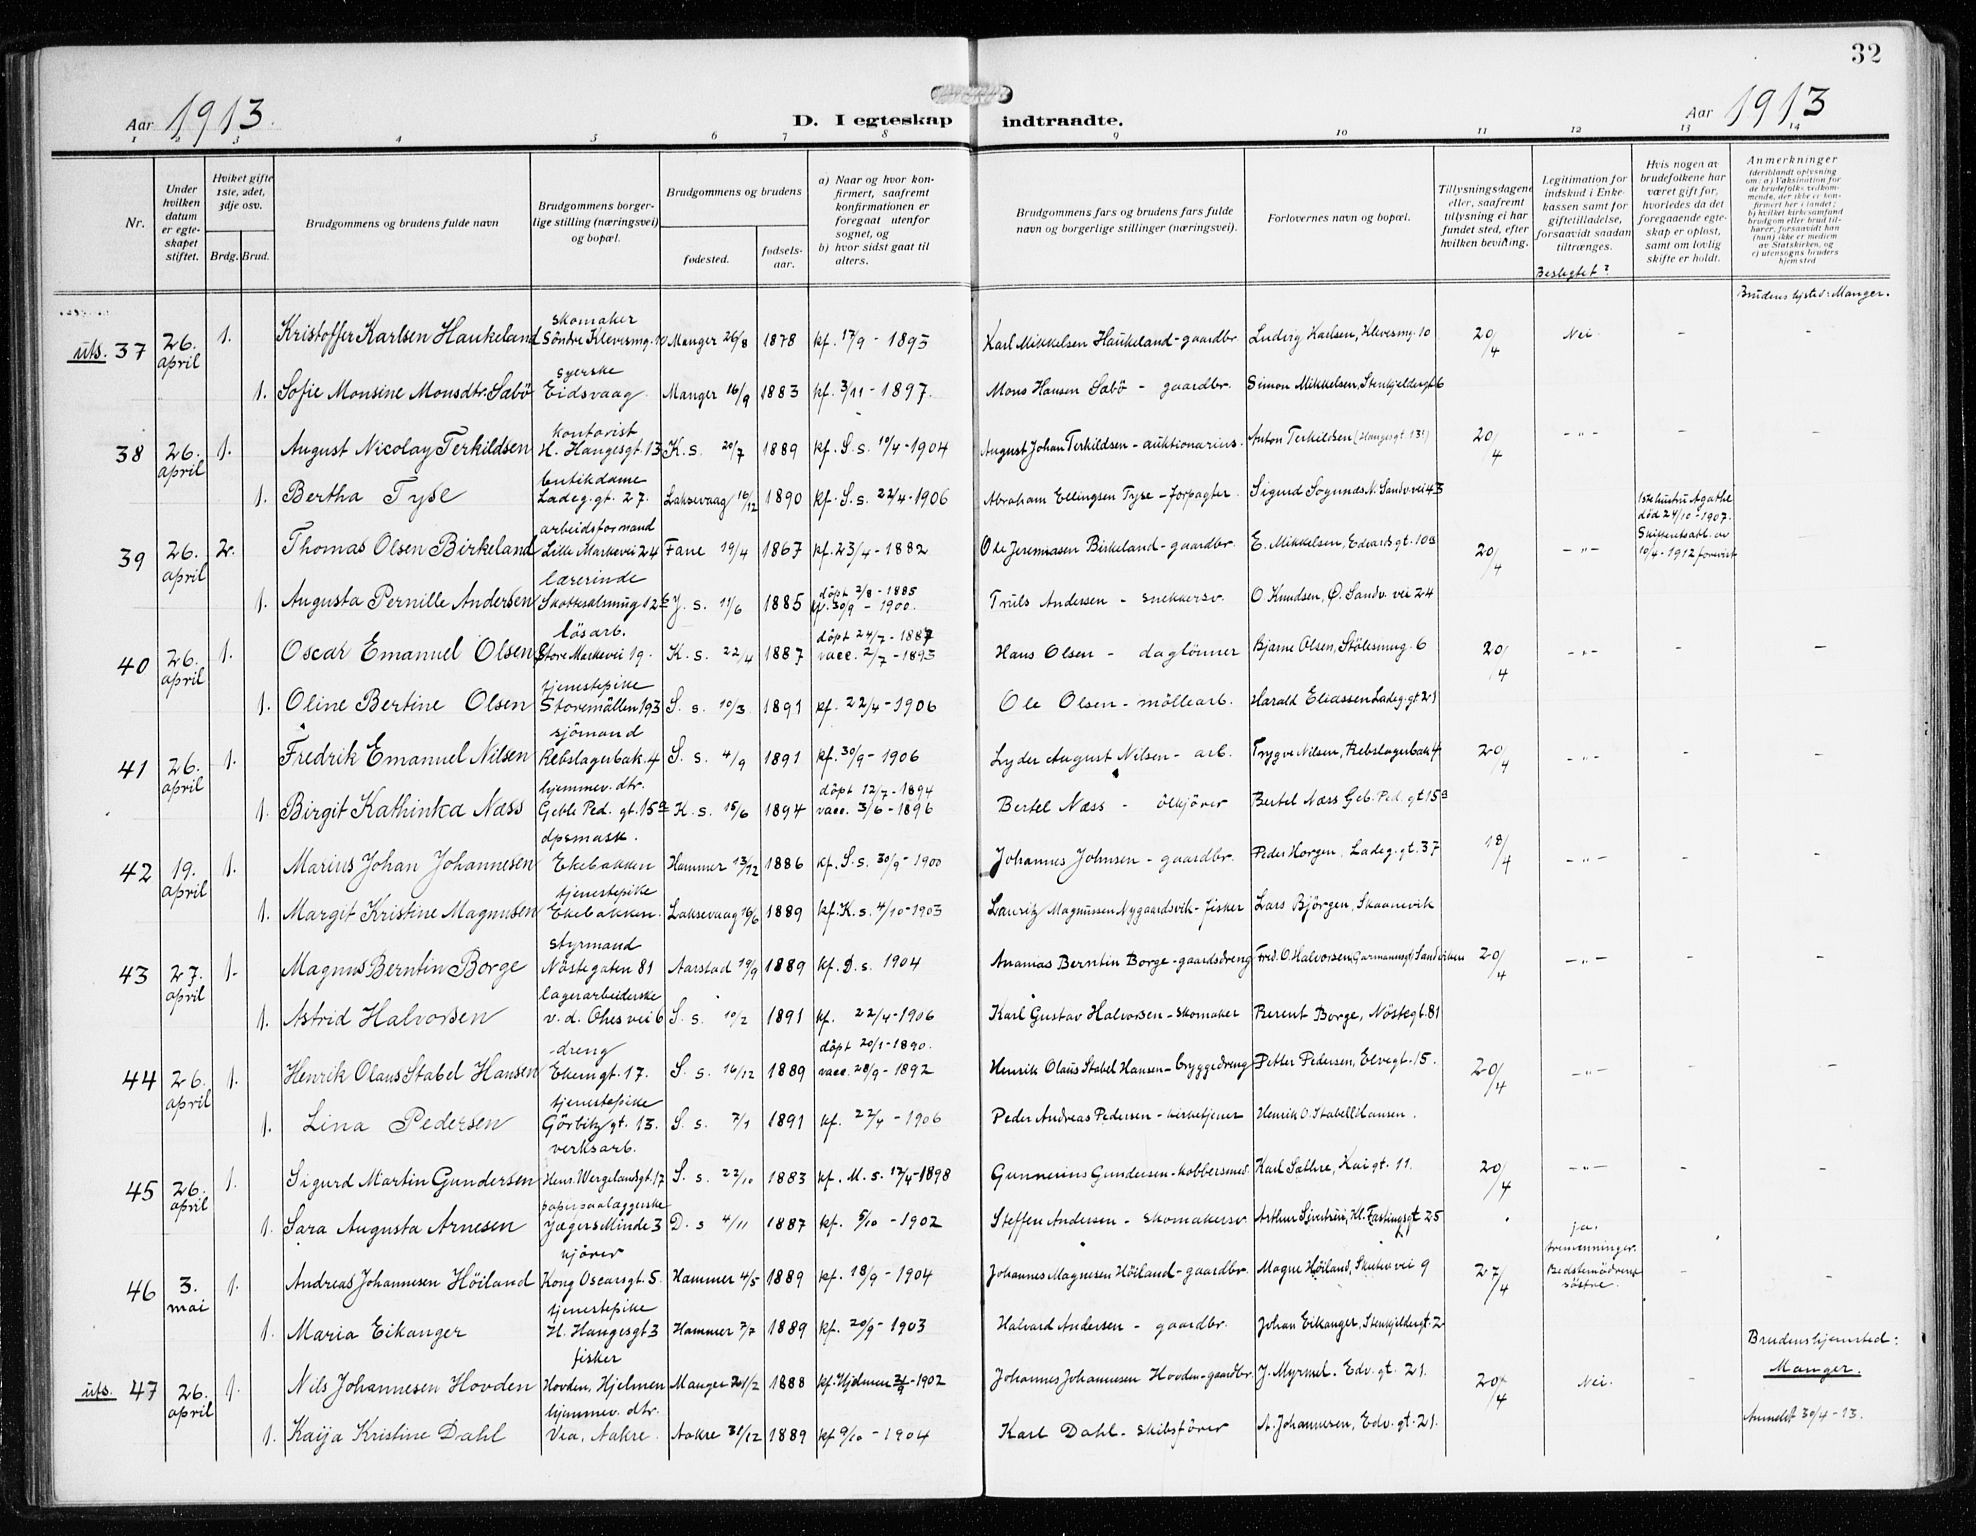 32
Aar 1913.
D. I egteskap indtraadte.
Aar 1913
1 2 3 4 5 6 7 8 9 10 11 12 13 14
Nr.
Under hvilken datum er egteskapet stiftet.
Hvilket gifte 1ste, 2det, 3dje osv.
Brdg. Brud.
Brudgommens og brudens fulde navn
Brudgommens borgerlige stilling (næringsvei) og bopæl.
Brudgommens og brudens
fødested.
fødselsaar.
a) Naar og hvor konfirmert, saafremt konfirmationen er foregaat utenfor sognet, og
b) hvor sidst gaat til alters.
Brudgommens fars og brudens fars fulde navn og borgerlige stillinger (næringsvei).
Forlovernes navn og bopæl.
Tillysningsdagene eller, saafremt tillysning ei har fundet sted, efter hvilken bevilling.
Legitimation for indskud i Enkekassen samt for giftetilladelse, forsaavidt saadan tiltrænges.
Beslegtet?
Hvis nogen av brudefolkene har været gift før, hvorledes da det foregaaende egteskap er opløst, samt om lovlig skifte er holdt.
Anmerkninger (deriblandt oplysning om: a) Vaksination for de brudefolks vedkommende, der ikke er konfirmert her i landet; b) hvilket kirkesamfund brudgom eller brud tilhører, forsaavidt han (hun) ikke er medlem av Statskirken, og c) utensogns bruders hjemsted
Brudens hjsted: Manger.
uts. 37 26. april 1. Kristoffer Karlsen Haukeland skomaker Söndre Klevesmg. 10 Manger 26/8 1878 kf. 17/9 - 1893 Karl Mikkelsen Haukeland - gaardbr. Ludvig Karlsen, Klevesmg. 10 20/4 Nei. - -
1. Sofie Monsine Monsdtr. Sæbö syerske Eidsvaag. Manger 16/9 1883 kf. 3/11 - 1897. Mons Hansen Sæbö - gaardbr. Simon Mikkelsen, Stenkjeldergt. 6
38 26. april 1. August Nicolay Terkildsen kontorist H. Haugesgt. 13 K. s. 20/7 1889 kf. S. s. 10/4 - 1904 August Johan Terkildsen - auktionarius. Anton Terkildsen (Haugesgt. 13) 20/4 - " - - -
1. Bertha Tyse butikdame Ladeg. gt. 27. Laksevaag 16/12 1890 kf. S. s. 22/4 - 1906 Abraham Ellingsen Tyse - forpagter. Sigurd Sognnæs N. Sandv. vei 43
39 26. april 2. Thomas Olsen Birkeland arbeidsformand Lille Markevei 24 Fane 19/4 1867 kf. 23/4 - 1882 Ole Jeremiasen Birkeland - gaardbr. E. Mikkelsen, Edvards gt. 10a 20/4 - " - 1ste hustru Agathe död 24/10 - 1907. Skifteretsatt. av 10/4 - 1912 forevist
1. Augusta Pernille Andersen lærerinde Skottesalsmug 12 b J. s. 11/6 1885 döpt 3/8 - 1885 kf. 30/9 - 1900. Truls Andersen - snekkersv. O. Knudsen, Ø. Sandv. vei 24
40 26. april 1. Oscar Emanuel Olsen lösarb. Store Markevei 19. K. s. 22/4 1887 döpt 24/7 - 1887 vacc. 2/7 - 1893 Hans Olsen - daglönner Bjarne Olsen, Stölesmug. 6 20/4 - " - - -
1. Oline Bertine Olsen tjenestepike Storemöllen 193 S. s. 10/3 1891 kf. 22/4 - 1906 Ole Olsen - möllearb. Harald Eliassen Ladeg. gt 21
41 26. april 1. Fredrik Emanuel Nilsen sjömand Rebslagerbak. 4 S. s. 4/9 1891 kf. 30/9 - 1906 Lyder August Nilsen - arb. Trygve Nilsen, Rebslagerbak 4 20/4 - " - - -
1. Birgit Kathinka Næss hjemmev. dtr. Geble Ped. gt. 15 a K. s. 15/6 1894 döpt 12/7 - 1894 vacc. 3/6 - 1896 Bertel Næss - ölkjörer Bertel Næss Geb. Ped. gt 15 a
42 19. april 1. Marius Johan Johannesen dpsmask. Ekebakken Hammer 13/12 1886 kf. S. s. 30/9 - 1900 Johannes Johnsen - gaardbr. Peder Horgen, Ladeg. gt. 37 18/4 - " - - -
1. Margit Kristine Magnusen tjenestepike Ekebakken. Laksevaag 16/6 1889 kf. K. s. 4/10 - 1903 Lauritz Magnussen Nygaardsvik - fisker Lars Björgen, Skaanevik
43 27. april 1. Magnus Berntin Borge styrmand Nöstegaten 81 Aarstad 19/9 1889 kf. D. s. 1904 Ananias Berntin Borge - gaardsdreng Fred. O. Halvorsen, Garmannsgt Sandviken 20/4 - " - - -
1. Astrid Halvorsen lagerarbeiderske v. d. Ohes vei 6 S. s. 10/2 1891 kf. 22/4 - 1906 Karl Gustav Halvorsen - skomaker Berent Borge, Nöstegt. 81
44 26. april 1. Henrik Olaus Stabel Hansen -dreng Ekerngt. 17. S. s. 16/12 1889 döpt 20/1 - 1890. vacc. 28/9 - 1892 Henrik Olaus Stabel Hansen - bryggedreng Petter Pedersen, Elvegt. 15. 20/4 - " - - -
1. Lina Pedersen tjenestepike Görbitz gt. 13. S. s. 7/1 1891 kf. 22/4 - 1906 Peder Andreas Pedersen - kirketjener Henrik O. Stabell Hansen.
45 26. april 1. Sigurd Martin Gundersen verksarb. Henr. Wergelandsgt. 17 S. s. 22/10 1883 kf. M. s. 17/4 - 1898 Gunnerius Gundersen - kobbersmed. Karl Sæthre, Kaigt. 11. 20/4 - " - - -
1. Sara Augusta Arnesen papirpaalæggerske Jægers Minde 3 D. s 4/11 1887 kf. 5/10 - 1902 Steffen Andersen - skomakersv. Arthur Sivertsen, Kl. Fastingsgt 25
46 3. mai 1. Andreas Johannesen Höiland kjörer Kong Oscarsgt. 5. Hammer 4/5 1889 kf. 18/9 - 1904 Johannes Magnesen Höiland - gaardbr. Magne Höiland, Skuteviksvei 9 27/4 ja. tremenninger. Bedstemödrene söstre. - -
1. Maria Eikanger tjenestepike H. Haugesgt 3 Hammer 7/7 1889 kf. 20/9 - 1903 Halvard Andersen - gaardbr. Johan Eikanger, Stenkjeldergt. 2
uts. 47 26. april 1. Nils Johannesen Hovden fisker Hovden, Hjelmen Manger 21/2 1888 kf. Hjelmen 21/9 - 1902 Johannes Johannesen Hovden - gaardbr J. Myrmel. Edv. gt. 21. 20/4 Nei. - Brudens hjemsted: Manger.
1. Kaija Kristine Dahl hjemmev. dtr. Vea, Aakre. Aakre 31/12 1889 kf 9/10 - 1904 Karl Dahl - skibsförer A. Johannesen, Edv. gt. 21. Anmeldt 30/4 - 13.